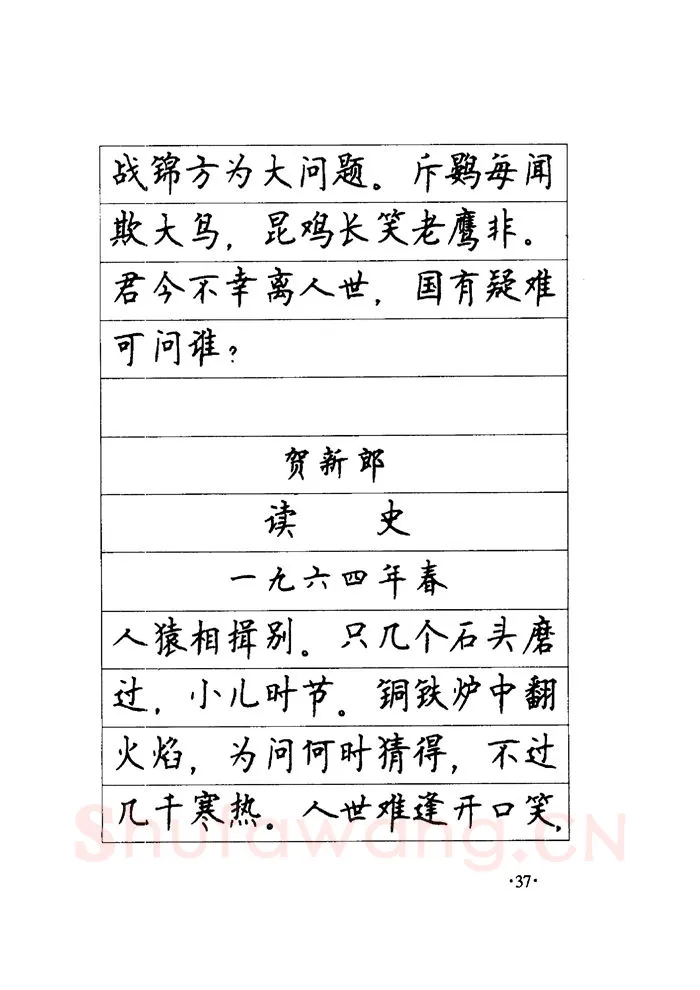 战锦方为大问题。斥鷃每闻
欺大鸟，昆鸡长笑老鹰非。
君今不幸离人世，国有疑难
可问谁？
贺新郎
读 史
一九六四年春
人猿相揖别。只几个石头磨
过，小儿时节。铜铁炉中翻
火焰，为问何时猜得，不过
几千寒热。人世难逢开口笑，
Shufawang.CN
·37·